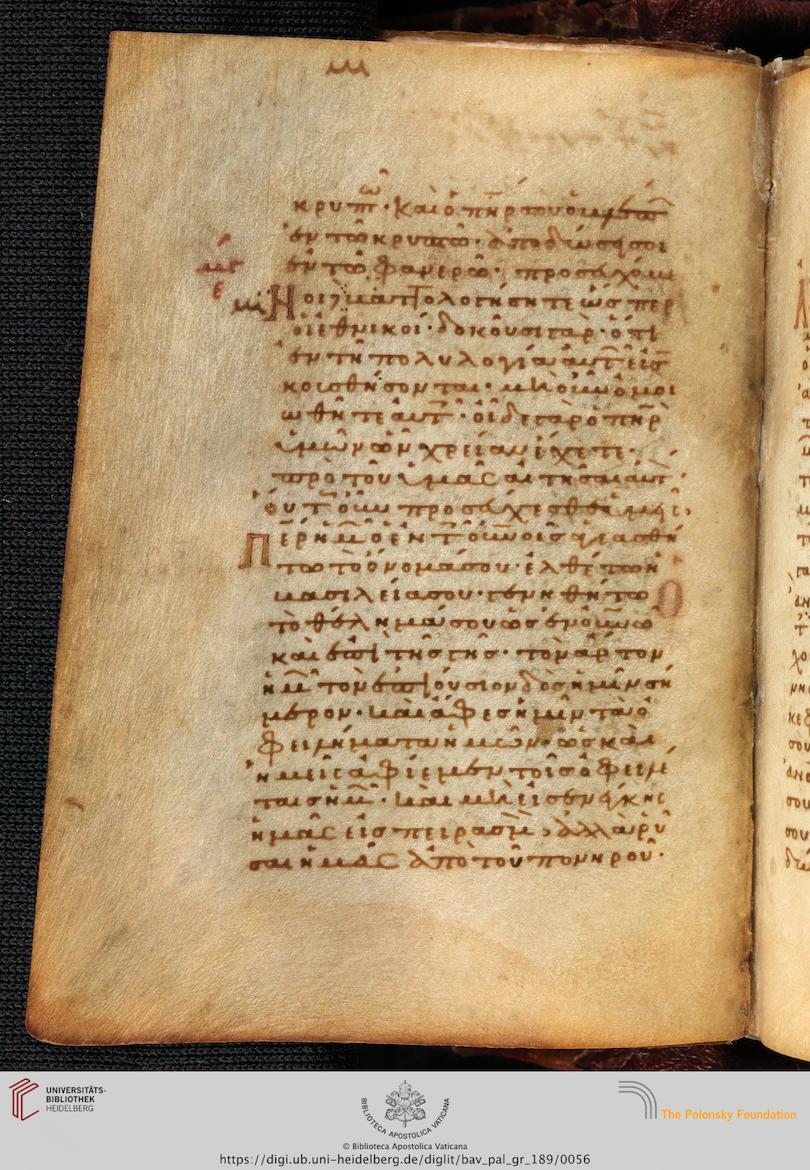 κρυπτῶ· καὶ ὁ πηρ σου ὁ βλέπων
ἐν τῶ κρυπτῶ· ἀποδώσει σοι
ἐν τῶ φανερῶ· προσευχόμε
νοι μὴ βαττολογήσητε ὥσπερ
οἱ ἐθνικοί· δοκοῦσι γὰρ· ὅτι
ἐν τῆ πολυλογία αὐτ εἰσ
ακουσθήσονται· μὴ οὖν ὁμοι
ωθῆτε αὐτ· οἶδε γὰρ ὁ πηρ
ὑμῶν ὧν χρείαν ἔχετε·
πρὸ τοῦ ὑμᾶς αἰτῆσαι αὐτ·
οὕτ οὖν προσεύχεσθε ὑμεῖς
Περ ἡμ ὁ ἐν τ οὐνοις ἁγιασθή
τω τὸ ὄνομά σου· ἐλθέτω ἡ
βασιλεία σου· γενηθήτω
τὸ θέλημά σου ὡς ἐν οὐνῶ
καὶ ἐπὶ τῆς γῆς· τὸν ἄρτον
ἡμ τὸν ἐπιούσιον δὸς ἡμῖν σή
μερον· καὶ ἄφες ἡμῖν τὰ ὀ
φειλήματα ἡμῶν· ὡς καὶ
ἡμεῖς ἀφίεμεν τοῖς ὀφειλέ
ταις ἡμ· καὶ μὴ εἰσενέγκης
ἡμᾶς εἰς πειρασμ, ἀλλὰ ῥῦ
σαι ἡμᾶς ἀπὸ τοῦ πονηροῦ·
UNIVERSITÄTS-
BIBLIOTHEK
HEIDELBERG
BIBLIOTECA APOSTOLICA VATICANA
© Biblioteca Apostolica Vaticana
The Polonsky Foundation
https://digi.ub.uni-heidelberg.de/diglit/bav_pal_gr_189/0056